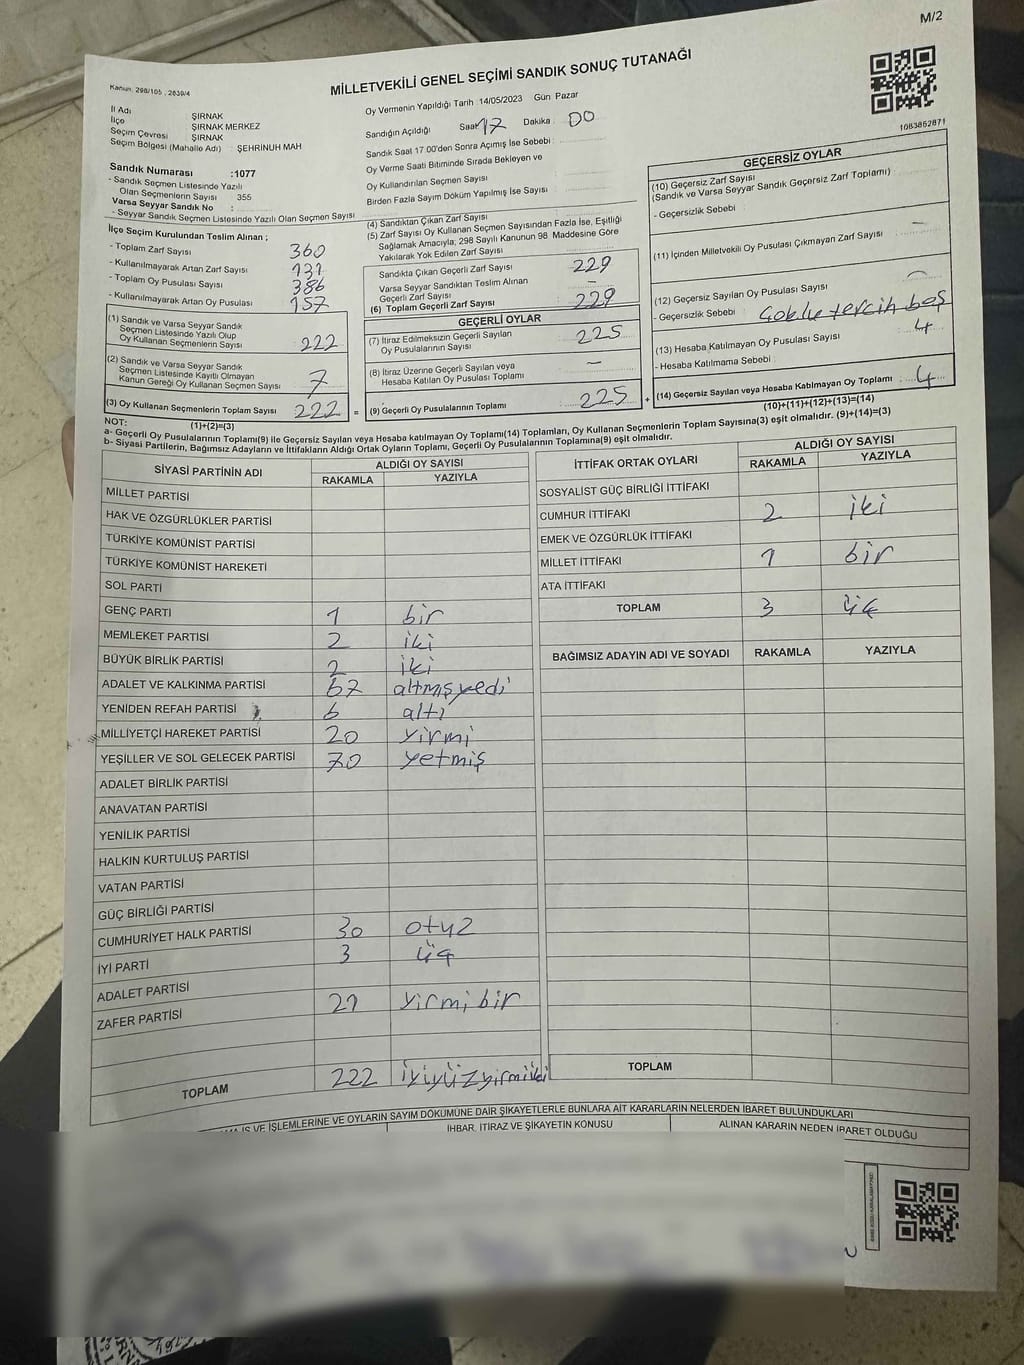 M/2
Kanun, 298/105 , 2839/4
MİLLETVEKİLİ GENEL SEÇİMİ SANDIK SONUÇ TUTANAĞI
1083862871
İl Adı ŞIRNAK
İlçe ŞIRNAK MERKEZ
Seçim Çevresi ŞIRNAK
Seçim Bölgesi (Mahalle Adı) : ŞEHRİNUH MAH
Sandık Numarası :1077
- Sandık Seçmen Listesinde Yazılı
Olan Seçmenlerin Sayısı : 355
Varsa Seyyar Sandık No :
- Seyyar Sandık Seçmen Listesinde Yazılı Olan Seçmen Sayısı
Oy Vermenin Yapıldığı Tarih 14/05/2023 Gün Pazar
Sandığın Açıldığı Saat 17 Dakika : 00
Sandık Saat 17.00'den Sonra Açımış İse Sebebi :
Oy Verme Saati Bitiminde Sırada Bekleyen ve
Oy Kullandırılan Seçmen Sayısı
Birden Fazla Sayım Döküm Yapılmış İse Sayısı
İlçe Seçim Kurulundan Teslim Alınan ;
- Toplam Zarf Sayısı 360
- Kullanılmayarak Artan Zarf Sayısı 131
- Toplam Oy Pusulası Sayısı 386
- Kullanılmayarak Artan Oy Pusulası 157
(1) Sandık ve Varsa Seyyar Sandık
Seçmen Listesinde Yazılı Olup
Oy Kullanan Seçmenlerin Sayısı 222
(2) Sandık ve Varsa Seyyar Sandık
Seçmen Listesinde Kayıtlı Olmayan
Kanun Gereği Oy Kullanan Seçmen Sayısı 7
(3) Oy Kullanan Seçmenlerin Toplam Sayısı 222 =
(1)+(2)=(3)
(4) Sandıktan Çıkan Zarf Sayısı
(5) Zarf Sayısı Oy Kullanan Seçmen Sayısından Fazla İse, Eşitliği
Sağlamak Amacıyla, 298 Sayılı Kanunun 98. Maddesine Göre
Yakılarak Yok Edilen Zarf Sayısı
Sandıkta Çıkan Geçerli Zarf Sayısı 229
Varsa Seyyar Sandıktan Teslim Alınan
Geçerli Zarf Sayısı –
(6) Toplam Geçerli Zarf Sayısı 229
GEÇERLİ OYLAR
(7) İtiraz Edilmeksizin Geçerli Sayılan
Oy Pusulalarının Sayısı 225
(8) İtiraz Üzerine Geçerli Sayılan veya
Hesaba Katılan Oy Pusulası Toplamı –
(9) Geçerli Oy Pusulalarının Toplamı 225 +
GEÇERSİZ OYLAR
(10) Geçersiz Zarf Sayısı
(Sandık ve Varsa Seyyar Sandık Geçersiz Zarf Toplamı) :
- Geçersizlik Sebebi :
(11) İçinden Milletvekili Oy Pusulası Çıkmayan Zarf Sayısı –
(12) Geçersiz Sayılan Oy Pusulası Sayısı –
- Geçersizlik Sebebi tercih boş
(13) Hesaba Katılmayan Oy Pusulası Sayısı 4
- Hesaba Katılmama Sebebi :
(14) Geçersiz Sayılan veya Hesaba Katılmayan Oy Toplamı 4
(10)+(11)+(12)+(13)=(14)
NOT:
a- Geçerli Oy Pusulalarının Toplamı(9) ile Geçersiz Sayılan veya Hesaba katılmayan Oy Toplamı(14) Toplamları, Oy Kullanan Seçmenlerin Toplam Sayısına(3) eşit olmalıdır. (9)+(14)=(3)
b- Siyasi Partilerin, Bağımsız Adayların ve İttifakların Aldığı Ortak Oyların Toplamı, Geçerli Oy Pusulalarının Toplamına(9) eşit olmalıdır.
SİYASİ PARTİNİN ADI ALDIĞI OY SAYISI
RAKAMLA YAZIYLA
MİLLET PARTİSİ
HAK VE ÖZGÜRLÜKLER PARTİSİ
TÜRKİYE KOMÜNİST PARTİSİ
TÜRKİYE KOMÜNİST HAREKETİ
SOL PARTİ
GENÇ PARTİ 1 bir
MEMLEKET PARTİSİ 2 iki
BÜYÜK BİRLİK PARTİSİ 2 iki
ADALET VE KALKINMA PARTİSİ 67 altmışyedi
YENİDEN REFAH PARTİSİ 6 altı
MİLLİYETÇİ HAREKET PARTİSİ 20 yirmi
YEŞİLLER VE SOL GELECEK PARTİSİ 70 yetmiş
ADALET BİRLİK PARTİSİ
ANAVATAN PARTİSİ
YENİLİK PARTİSİ
HALKIN KURTULUŞ PARTİSİ
VATAN PARTİSİ
GÜÇ BİRLİĞİ PARTİSİ
CUMHURİYET HALK PARTİSİ 30 otuz
İYİ PARTİ 3 üç
ADALET PARTİSİ
ZAFER PARTİSİ 21 yirmi bir
TOPLAM 222 iyiyüzyirmiiki
İTTİFAK ORTAK OYLARI ALDIĞI OY SAYISI
RAKAMLA YAZIYLA
SOSYALİST GÜÇ BİRLİĞİ İTTİFAKI
CUMHUR İTTİFAKI 2 iki
EMEK VE ÖZGÜRLÜK İTTİFAKI
MİLLET İTTİFAKI 1 bir
ATA İTTİFAKI
TOPLAM 3 üç
BAĞIMSIZ ADAYIN ADI VE SOYADI RAKAMLA YAZIYLA
TOPLAM
İŞ VE İŞLEMLERİNE VE OYLARIN SAYIM DÖKÜMÜNE DAİR ŞİKAYETLERLE BUNLARA AİT KARARLARIN NELERDEN İBARET BULUNDUKLARI
İHBAR, İTİRAZ VE ŞİKAYETİN KONUSU ALINAN KARARIN NEDEN İBARET OLDUĞU